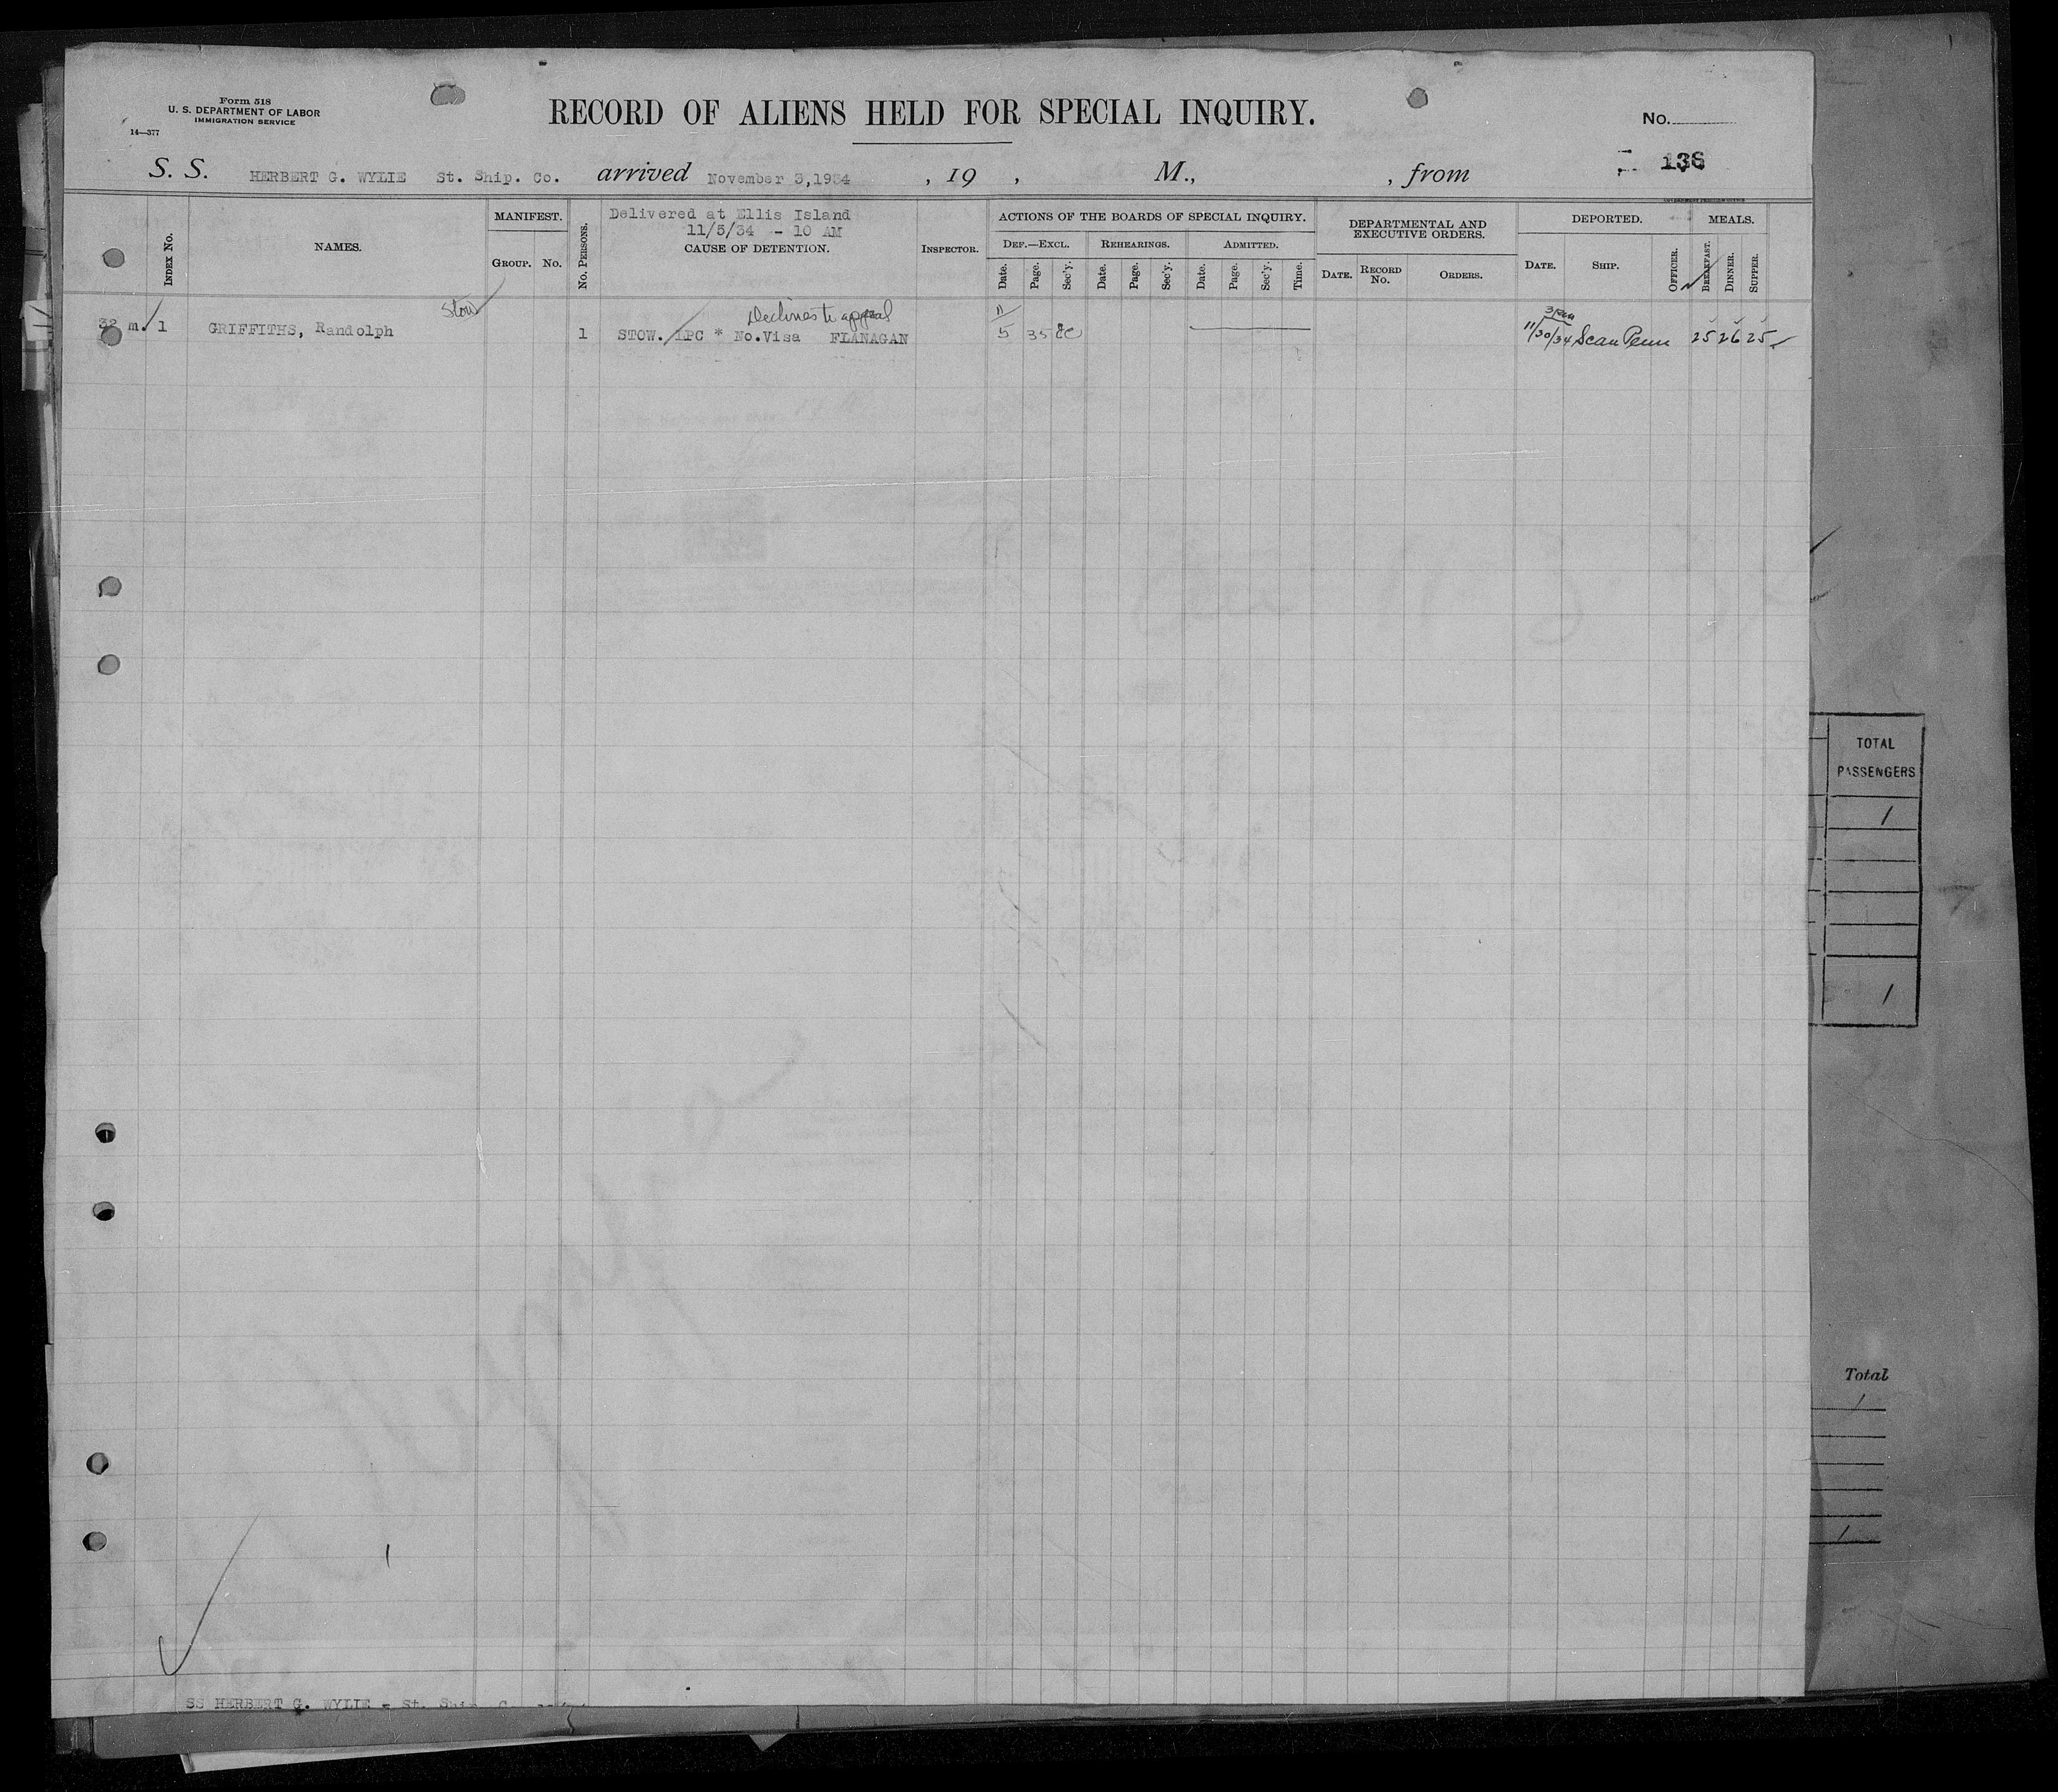 Form 518
U. S. DEPARTMENT OF LABOR
IMMIGRATION SERVICE
14—377
RECORD OF ALIENS HELD FOR SPECIAL INQUIRY.
No.
138
S. S. HERBERT G. WYLIE St. Ship. Co. arrived November 3, 1934 , 19 , M., , from
INDEX No.
NAMES.
MANIFEST.
GROUP. No.
No. PERSONS.
Delivered at Ellis Island
11/5/34 - 10 AM
CAUSE OF DETENTION.
INSPECTOR.
ACTIONS OF THE BOARDS OF SPECIAL INQUIRY.
DEF.—EXCL. REHEARINGS. ADMITTED.
Date. Page. Sec'y. Date. Page. Sec'y. Date. Page. Sec'y. Time.
DEPARTMENTAL AND
EXECUTIVE ORDERS.
DATE. RECORD No. ORDERS.
DEPORTED.
DATE. SHIP. OFFICER.
MEALS.
BREAKFAST. DINNER. SUPPER.
Stow
Declines to appeal
11
m. 1 GRIFFITHS, Randolph 1 STOW. LPC * No.Visa FLANAGAN 5 35 11/30/34 Scan Penn 25 26 25
TOTAL
PASSENGERS
1
1
Total
1
1
1
SS HERBERT G. WYLIE - St. Ship.